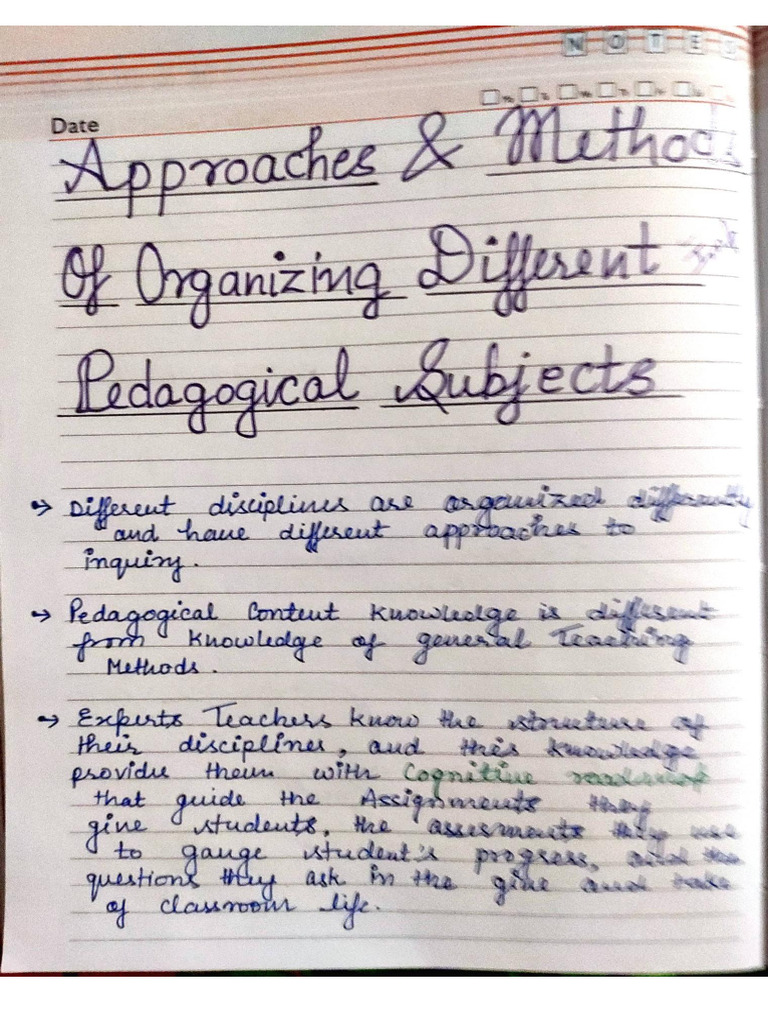 NOTES
Date
Approaches & Methods
Of Organizing Different
Pedagogical Subjects
Different disciplines are organized differently
and have different approaches to
inquiry.
Pedagogical Content Knowledge is different
from knowledge of general Teaching
Methods.
Experts Teachers know the structure of
their disciplines, and this knowledge
provides them with Cognitive roadmaps
that guide the Assignments they
give students, the assesments they use
to gauge student's progress, and the
questions they ask in the give and take
of classroom life.